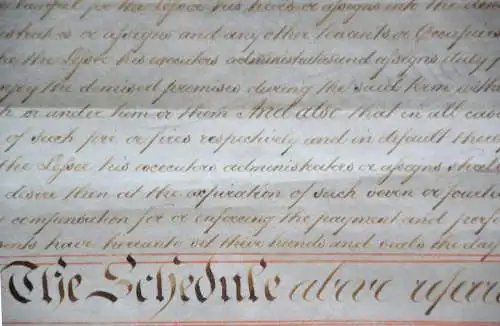 lawful for the Lessor his heirs or assigns into the dem
istrators or assigns and any other tenants or Occupiers
the Lessor his executors administrators and assigns duly p
enjoy the demised premises during the said term witho
or under him or them And also that in all case
of such fire or fires respectively and in default there
the Lessee his executors administrators or assigns shall
desire then at the expiration of such seven or fourte
compensation for or enforcing the payment and perf
have hereunto set their hands and seals the day
The Schedule above referr